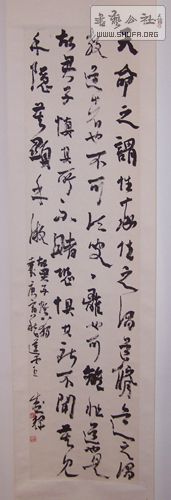 书艺公社
WWW.SHUFA.ORG
天命之謂性率性之謂道脩道之謂
教道者也不可須臾離也可離非道也是
故君子慎其所不睹恐懼其所不聞莫見
乎隱莫顯乎微
故君子慎其獨
歲庚寅